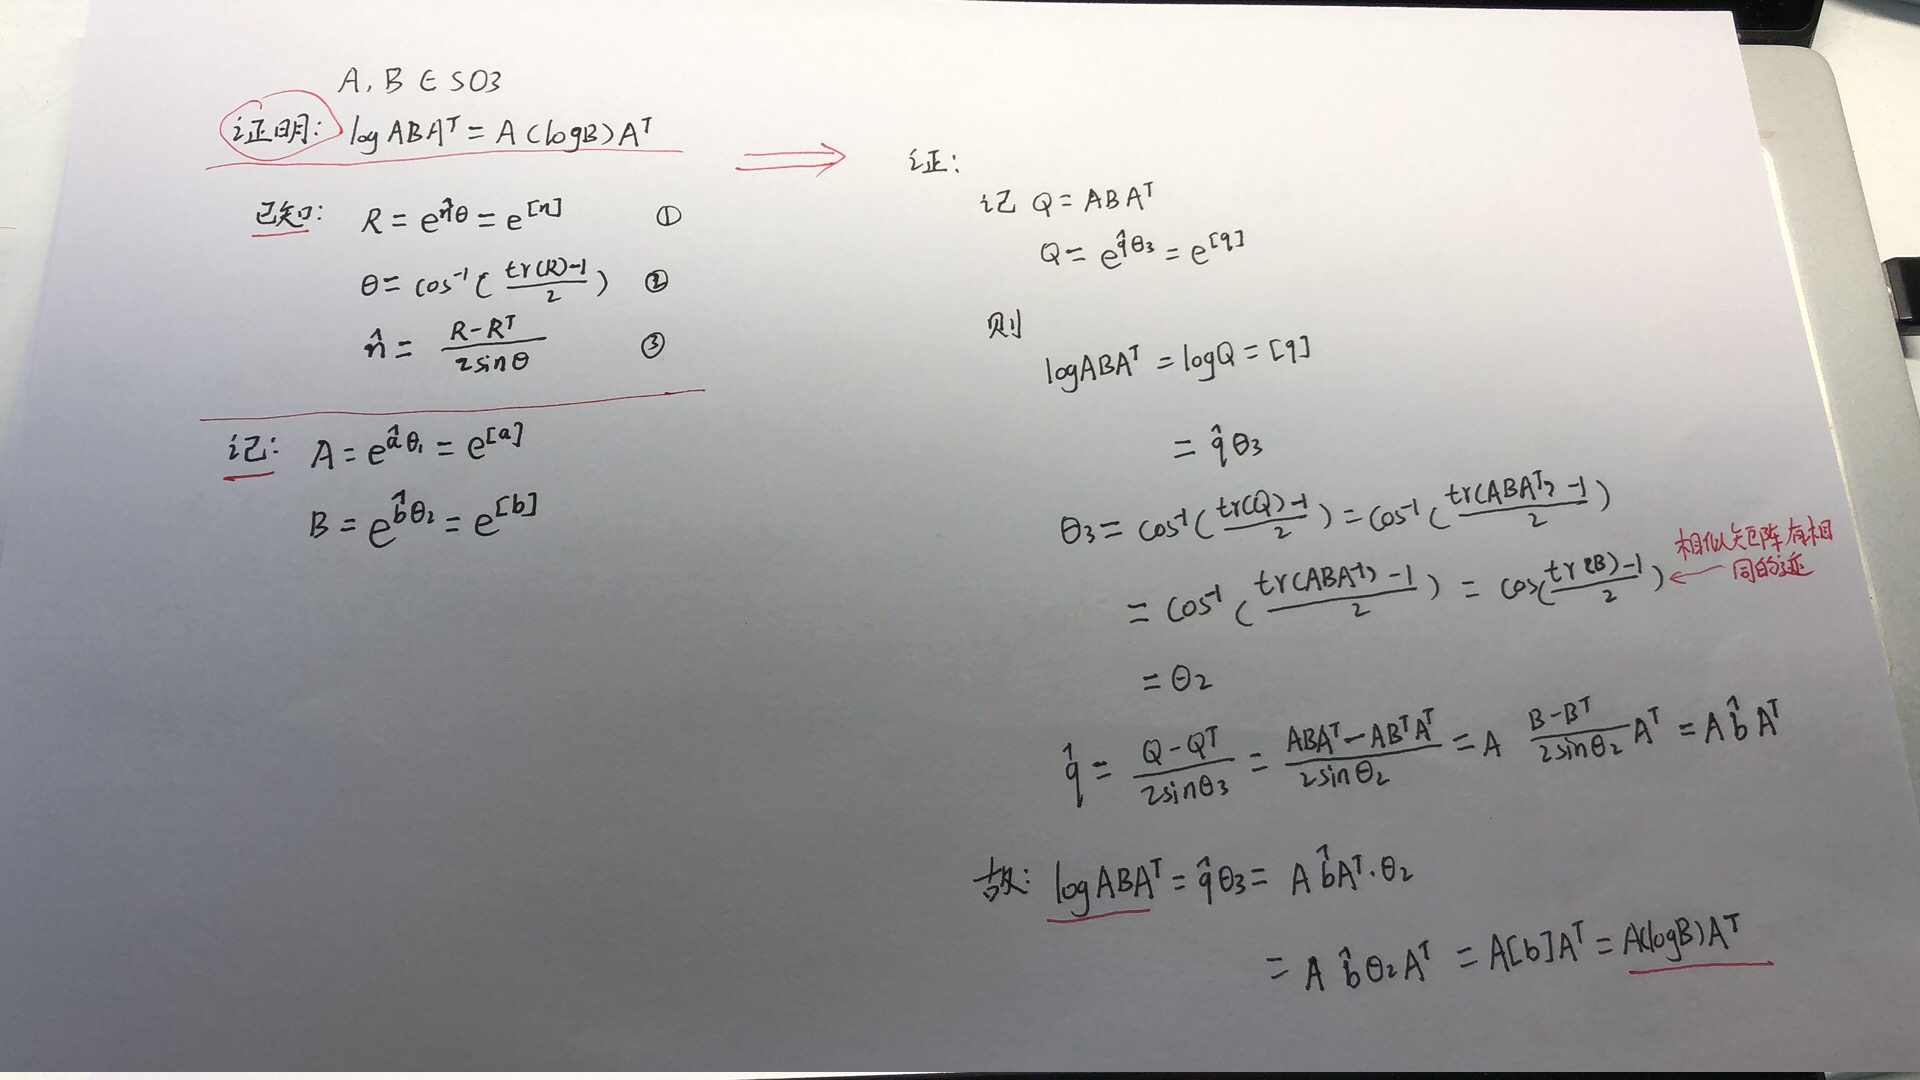 A, B ∈ SO3
证明: log ABAᵀ = A (logB) Aᵀ
已知: R = e^{n̂θ} = e^{[n]} ①
θ = cos⁻¹ ( (tr(R)-1)/2 ) ②
n̂ = (R-Rᵀ)/(2sinθ) ③
记: A = e^{âθ₁} = e^{[a]}
B = e^{b̂θ₂} = e^{[b]}
证:
记 Q = ABAᵀ
Q = e^{q̂θ₃} = e^{[q]}
则
logABAᵀ = logQ = [q]
= q̂θ₃
θ₃ = cos⁻¹ ( (tr(Q)-1)/2 ) = cos⁻¹ ( (tr(ABAᵀ)-1)/2 )
= cos⁻¹ ( (tr(ABA⁻¹)-1)/2 ) = cos( (tr(B)-1)/2 ) ← 相似矩阵有相
同的迹
= θ₂
q̂ = (Q-Qᵀ)/(2sinθ₃) = (ABAᵀ-ABᵀAᵀ)/(2sinθ₂) = A (B-Bᵀ)/(2sinθ₂) Aᵀ = A b̂ Aᵀ
故: logABAᵀ = q̂θ₃ = A b̂Aᵀ·θ₂
= A b̂θ₂Aᵀ = A[b]Aᵀ = A(logB)Aᵀ